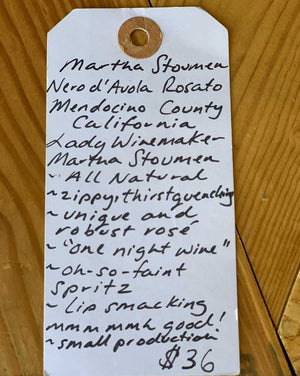 Martha Stoumen
Nero d'Avola Rosato
Mendocino County
California
Lady Winemaker
Martha Stoumen
~ All Natural
~ zippy; thirst quenching
~ unique and
robust rosé
~ "one night wine"
~ oh-so-faint
spritz
~ lip smacking
mmm mmh good!
~ small production
$36